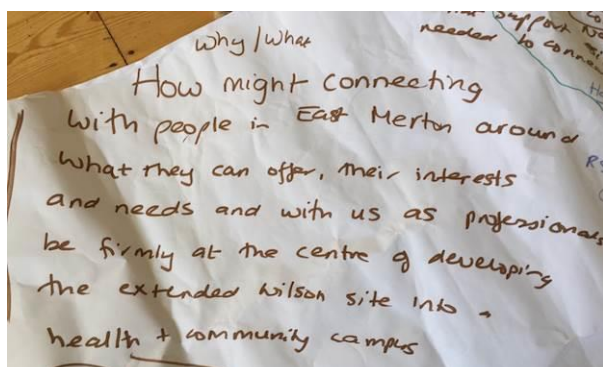 Why/What
How might connecting
with people in East Merton around
what they can offer, their interests
and needs and with us as professionals
be firmly at the centre of developing
the extended Wilson site into a
health + community campus
support
needed to